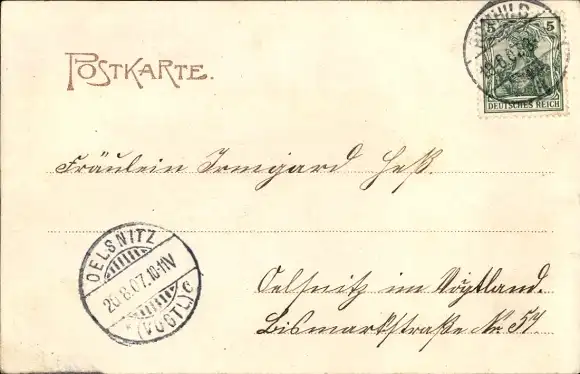 POSTKARTE.
5 5
DEUTSCHES REICH
Fräulein Irmgard Heß.
OELSNITZ
26.8.07.10-11V
* (VOGTL.) c
Oelsnitz im Vogtland.
Bismarkstraße No 57.